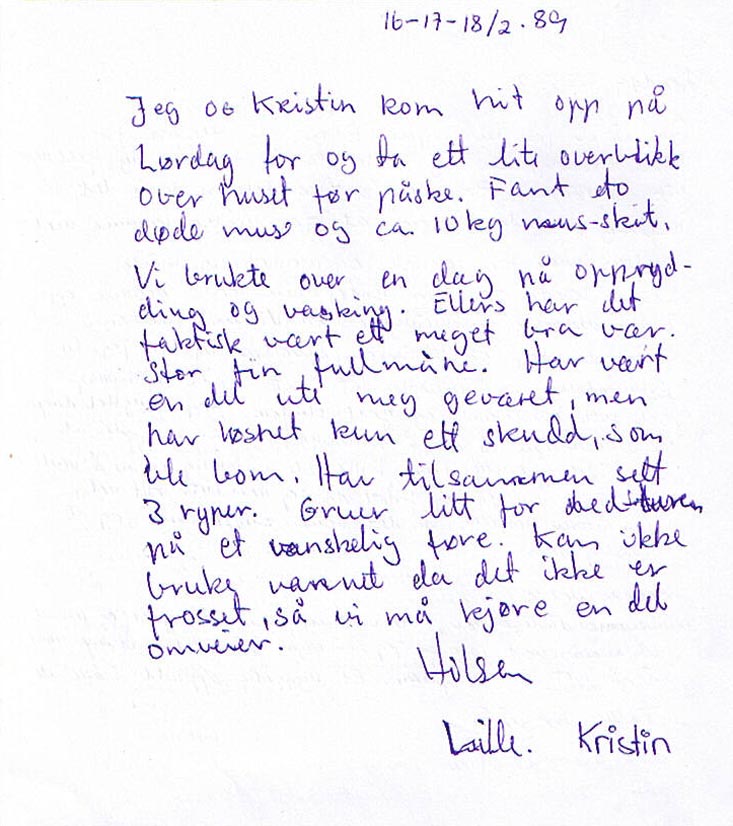 16-17-18/2.89
Jeg og Kristin kom hit opp på
Lørdag for og ta ett lite overblikk
over huset før påske. Fant to
døde mus og ca. 10 kg mus-skit.
Vi brukte over en dag på oppryd-
ding og vasking. Ellers har det
faktisk vært ett meget bra vær.
Stor fin fullmåne. Har vært
en del ute meg geværet, men
har løsnet kun ett skudd, som
ble bom. Har tilsammen sett
3 ryper. Gruer litt for nedturen
på et vanskelig føre. Kan ikke
bruke vannet da det ikke er
frosset, så vi må kjøre en del
omveier.
Hilsen
Kristin